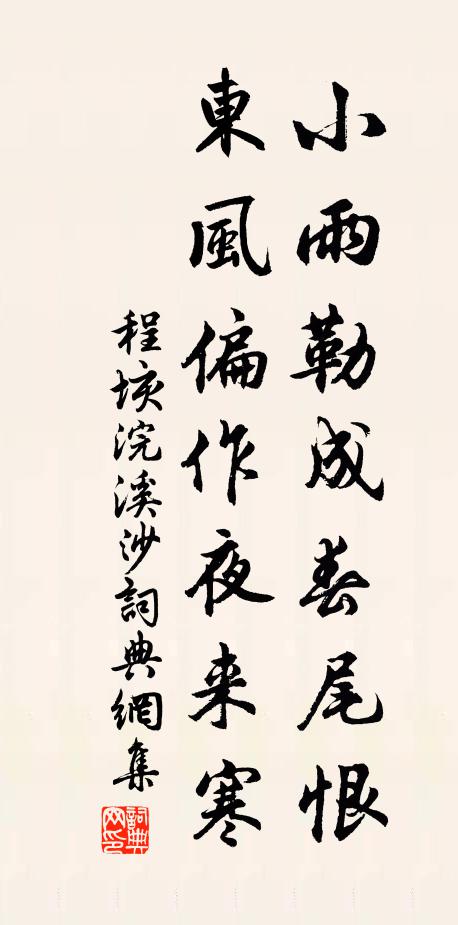 小雨勒成春尾恨
東風偏作夜来寒
程垓浣溪沙詞典網集
詞典网印